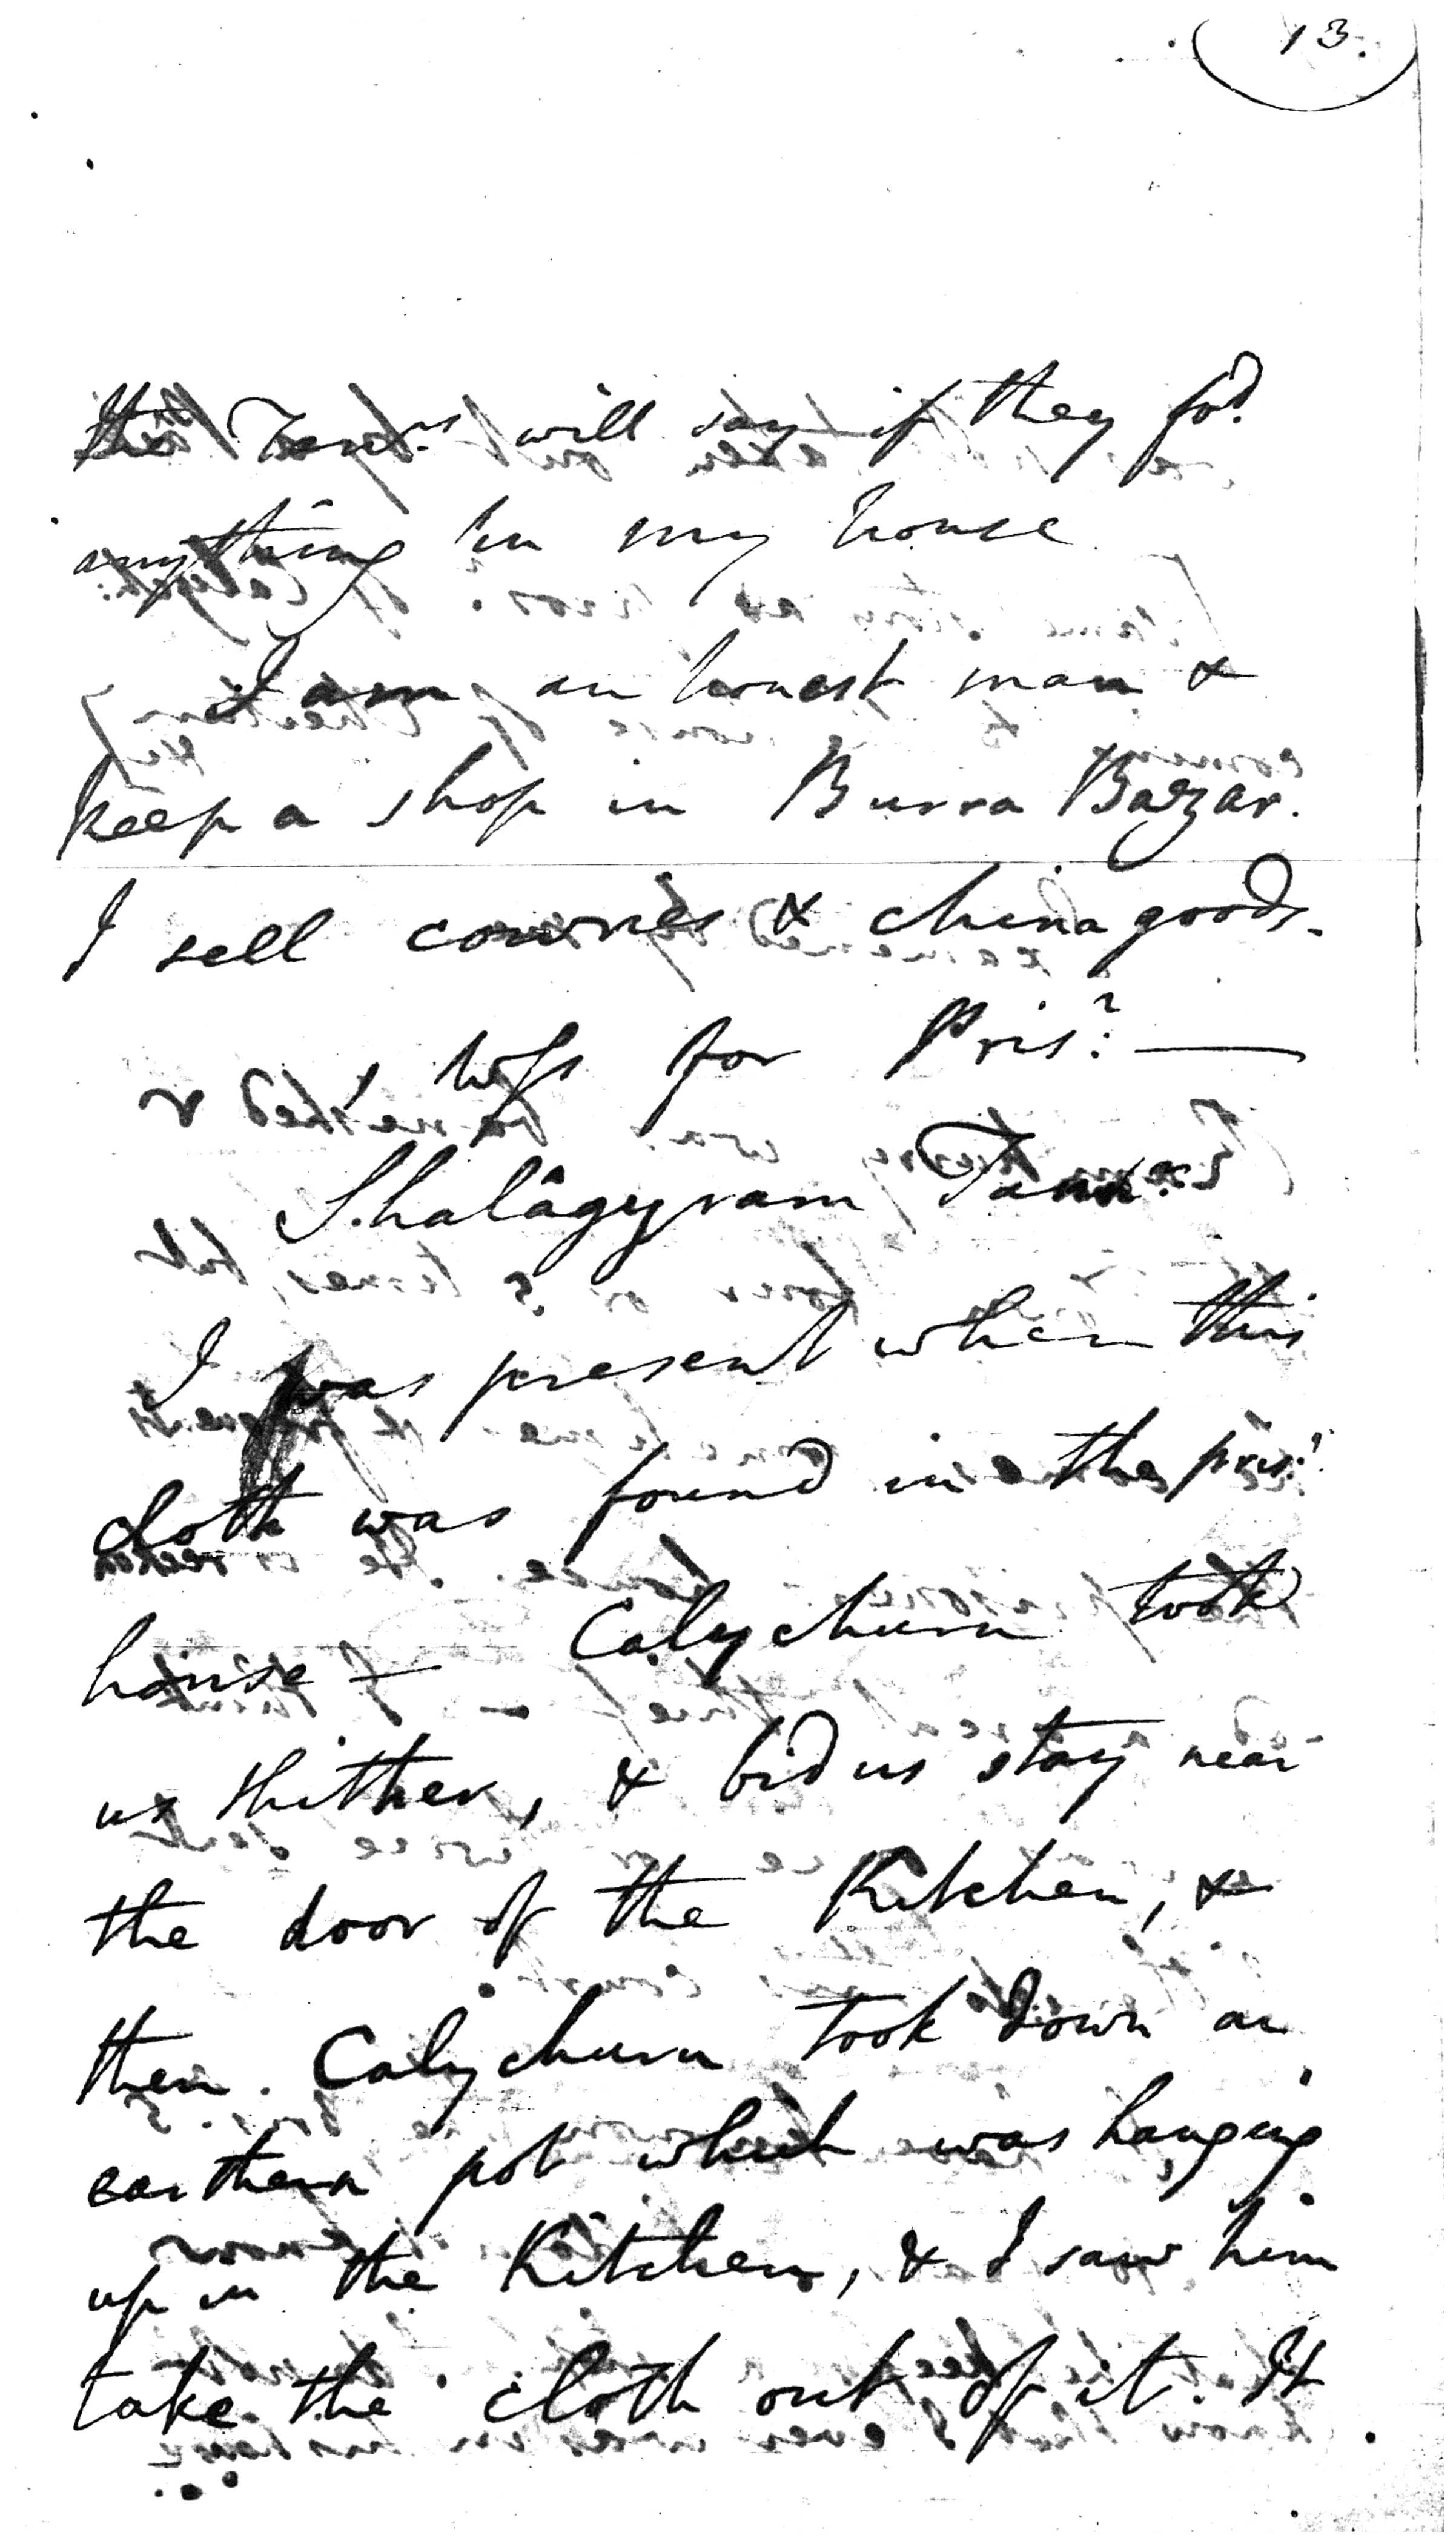 13.
the Tann.rs will say if they fo.d
anything in my house
I am an honest man &
keep a shop in Burra Bazar.
I sell cowries & china goods.
for Pris.r —
Shalâgyram
I was present when this
cloth was found in the pris.rs
house — Calychurn took
us thither, & bid us stay near
the door of the Kitchen, &
then Calychurn took down an
earthern pot which was hanging
up in the Kitchen, & I saw him
take the cloth out of it. It